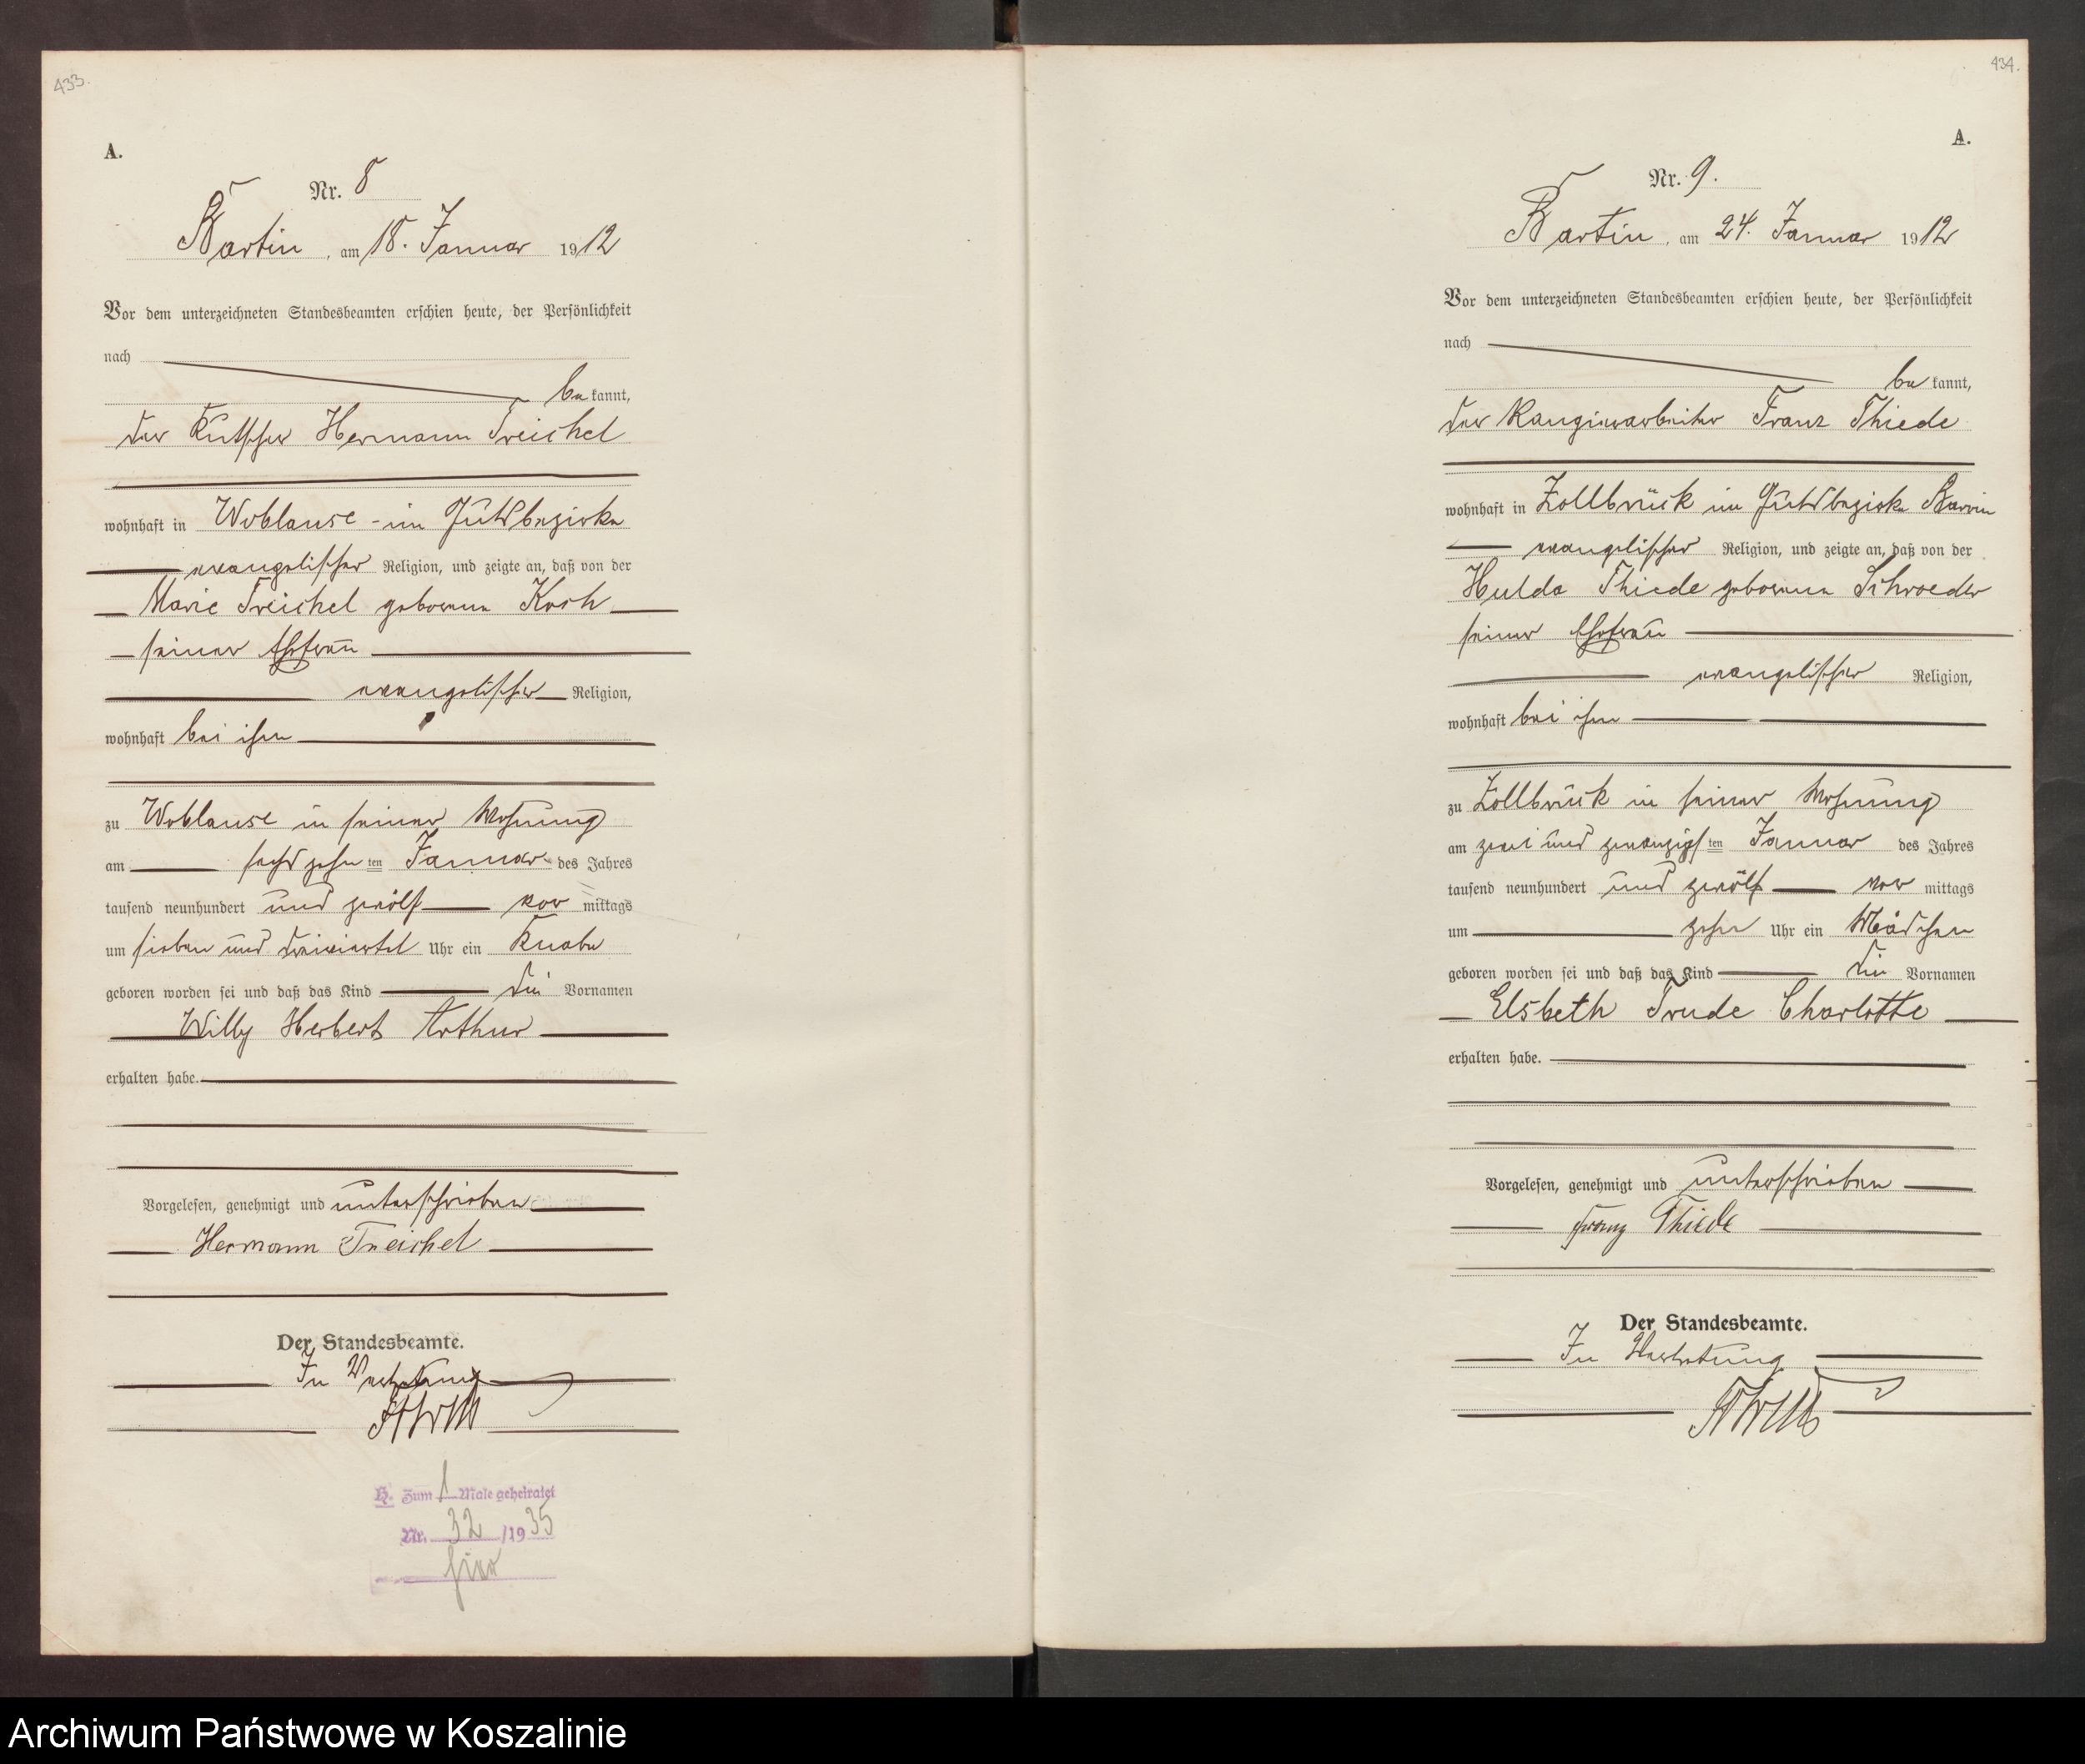 433.
A.
Nr. 8
Bartin, am 18. Januar 1912
Vor dem unterzeichneten Standesbeamten erschien heute, der Persönlichkeit
nach
be kannt,
der Kutscher Hermann Treichel
wohnhaft in Woblanse - im Gutsbezirke
evangelischer Religion, und zeigte an, daß von der
Marie Treichel geborene Koch
seiner Ehefrau
evangelischer Religion,
wohnhaft bei ihm
zu Woblanse in seiner Wohnung
am sechszehn ten Januar des Jahres
tausend neunhundert und zwölf vor mittags
um sieben und dreiviertel Uhr ein Knabe
geboren worden sei und daß das Kind die Vornamen
Willy Herbert Arthur
erhalten habe.
Vorgelesen, genehmigt und unterschrieben
Hermann Treichel
Der Standesbeamte.
In Vertretung
H. Zum 1 Male geheiratet
Nr. 32 /1935
434.
A.
Nr. 9.
Bartin, am 24. Januar 1912
Vor dem unterzeichneten Standesbeamten erschien heute, der Persönlichkeit
nach
be kannt,
der Rangierarbeiter Franz Thiede
wohnhaft in Zollbrück im Gutsbezirke Barvin
evangelischer Religion, und zeigte an, daß von der
Hulda Thiede geborene Schroeder
seiner Ehefrau
evangelischer Religion,
wohnhaft bei ihm
zu Zollbrück in seiner Wohnung
am zwei und zwanzigs ten Januar des Jahres
tausend neunhundert und zwölf vor mittags
um zehn Uhr ein Mädchen
geboren worden sei und daß das Kind die Vornamen
Elsbeth Trude Charlotte
erhalten habe.
Vorgelesen, genehmigt und unterschrieben
Franz Thiede
Der Standesbeamte.
In Vertretung
Archiwum Państwowe w Koszalinie